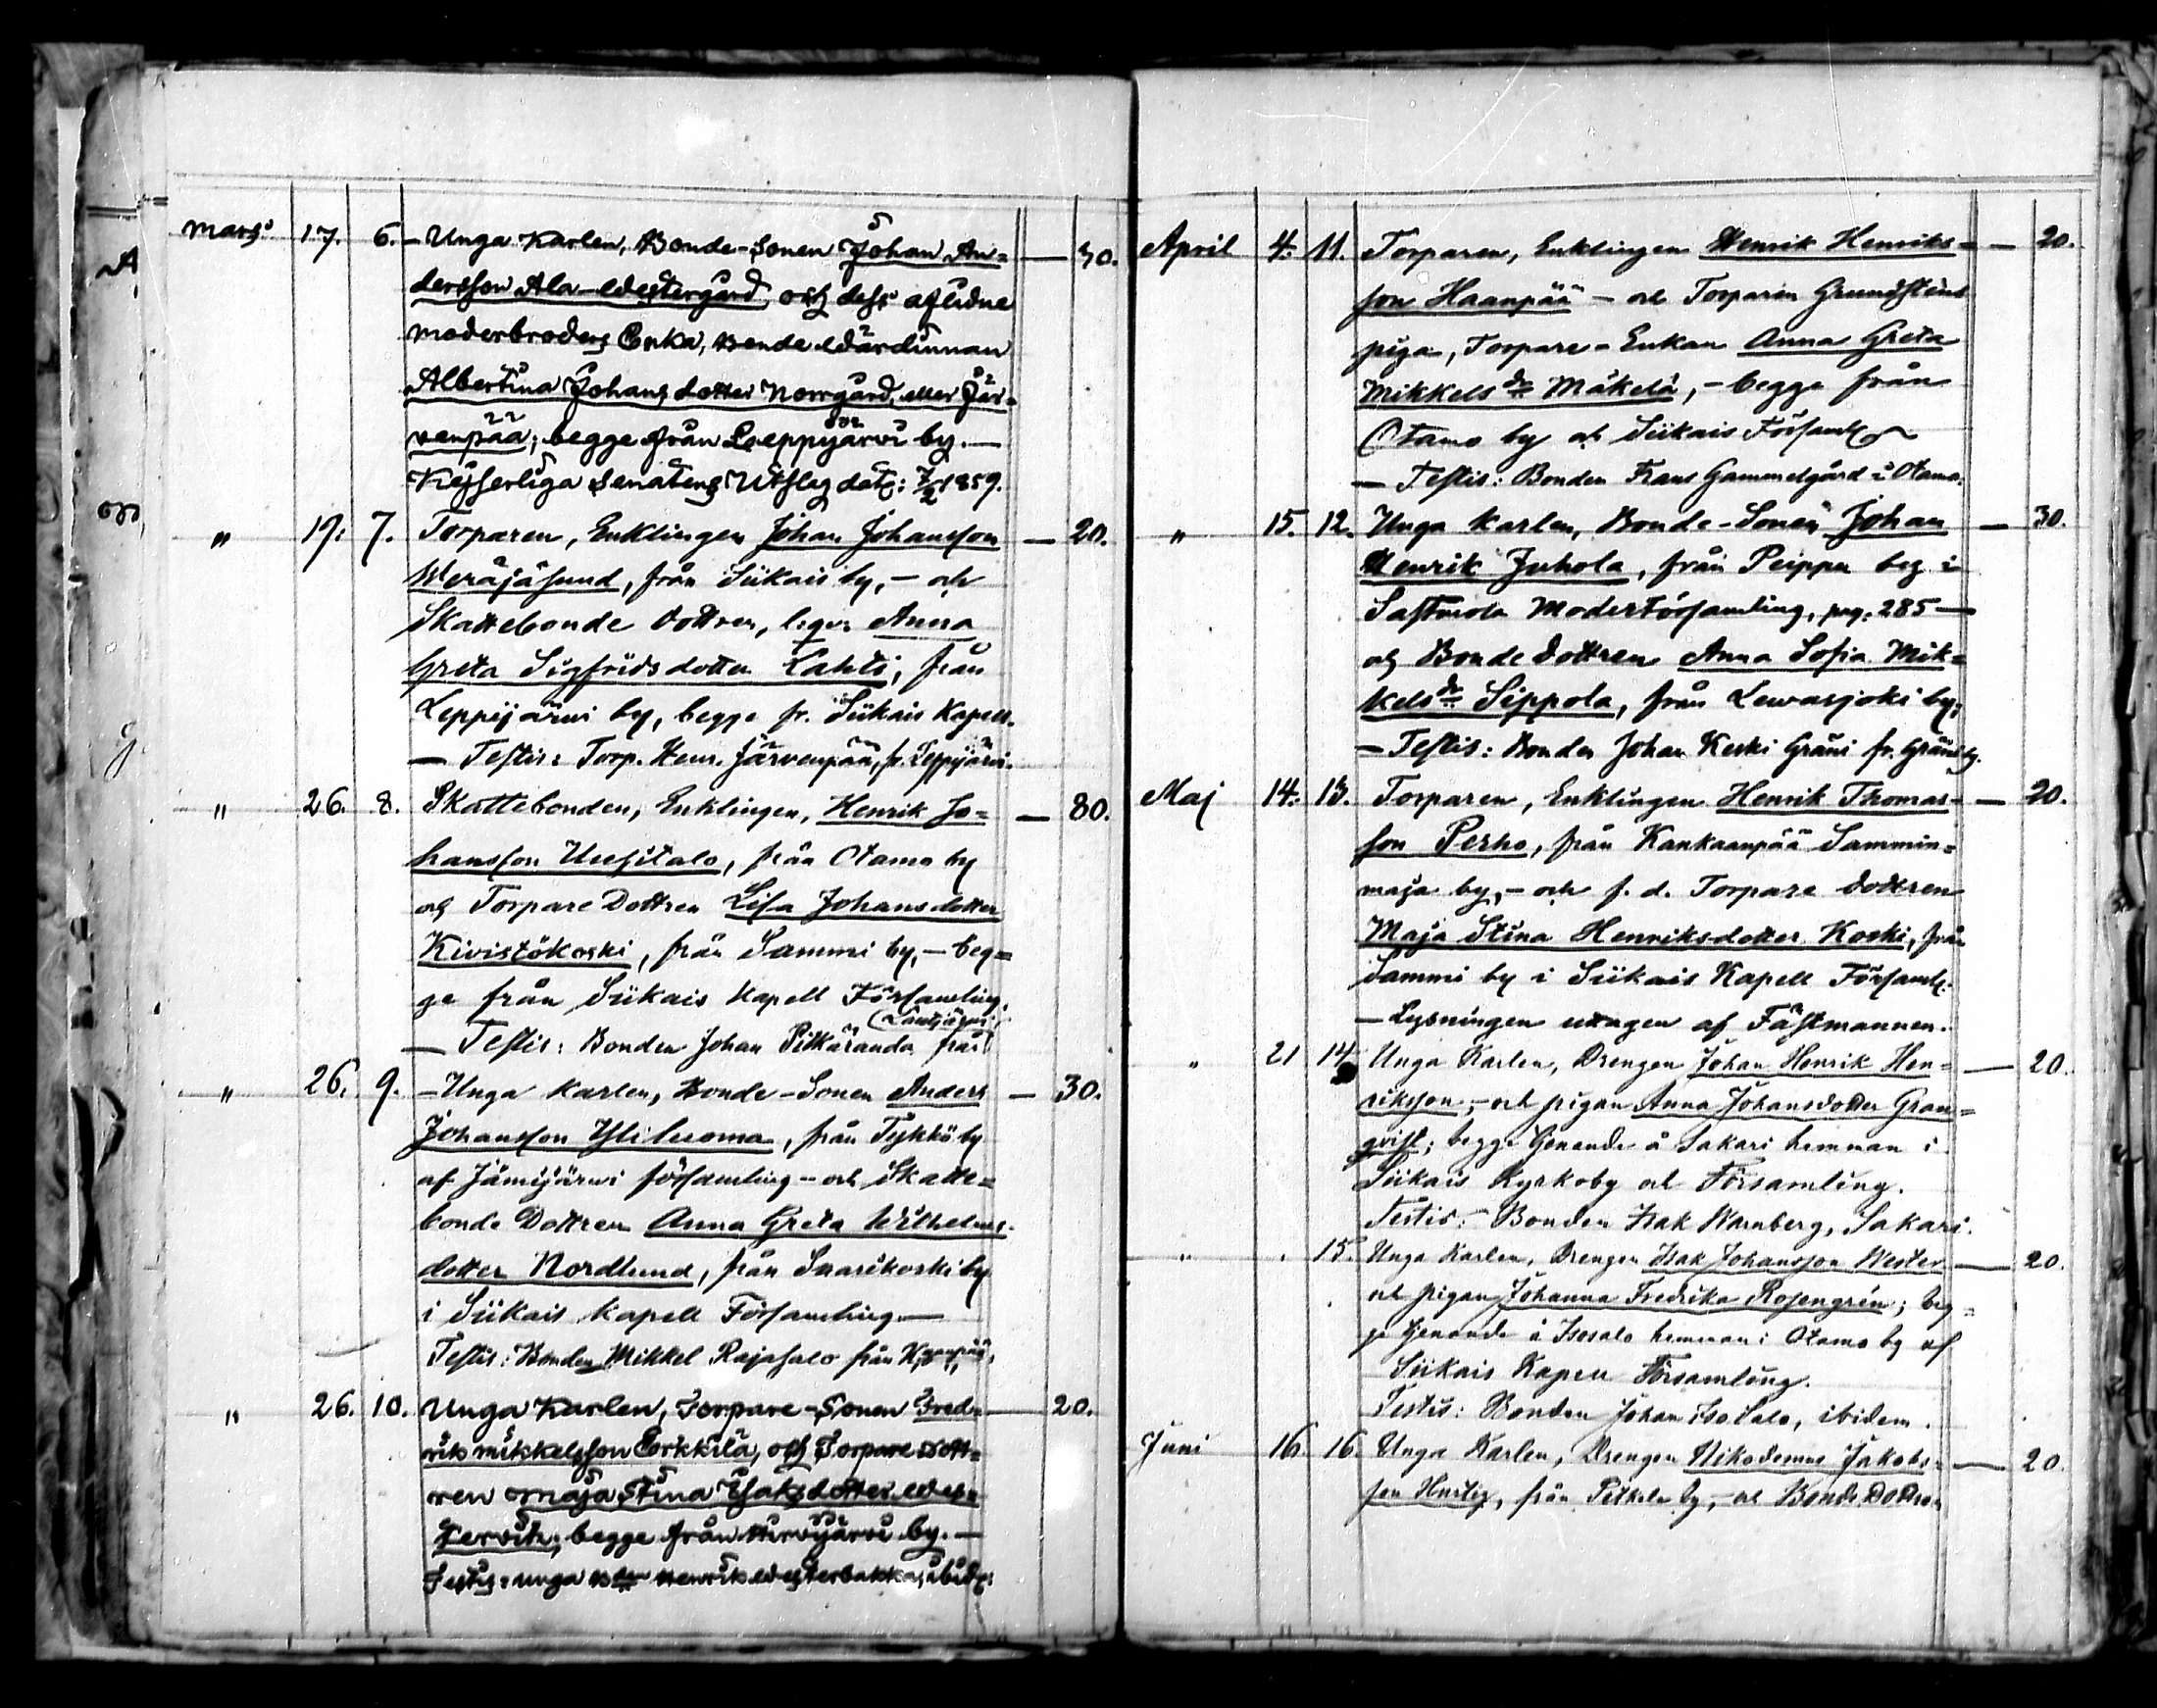 Mars 17. 6. – Unga Karlen, Bonde-Sonen Johan An= — 30.
dersson Ala-Westergård, och dess aflidne
moderbroders Enka, Bonde Wärdinnan
Albertina Johans dotter Norrgård, eller Jär=
venpää; begge från Leppijärwi by. —
Kejserliga Senatens Utslag dat: 7/2 1859.
" 19: 7. Torparen, Enklingen Johan Johansson — 20.
Weräjäsund, från Siikais by, – och
Skattebonde dottren, Anna
Greta Sigfridsdotter Lahti, från
Leppijärwi by, begge fr. Siikais Kapell.
— Testis: Torp. Henr. Järvenpää, fr. Leppijärwi.
" 26. 8. Skattebonden, Enklingen, Henrik Jo= — 80.
hansson Uusitalo, från Otamo by
och Torpare Dottren Lisa Johansdotter
Kivistökoski, från Sammi by, – beg=
ge från Siikais Kapell Församling.
— Testis: Bonden Johan Pitkäranda från
" 26. 9. – Unga Karlen, Bonde-Sonen Anders — 30.
Johansson Yliluoma, från Tykkö by
af Jämijärwi församling – och Skatte=
bonde Dottren Anna Greta Wilhelms-
dotter Nordlund, från Saarikoski by
i Siikais Kapell Församling. —
Testis: Bonden Mikkel Rajasalo från
" 26. 10. Unga Karlen, Torpare-Sonen Fred= — 20.
rik Mikkelsson Torkkila, och Torpare Dott=
ren Maja Stina Isaksdotter Wes=
terwik; begge från Hirvijärvi by. —
Testis: unga Henrik Westerbakka, ibid:
April 4. 11. Torparen, Enklingen Henrik Henriks= — 20.
son Haanpää – och Torparen Grundstens
piga, Torpare-Enkan Anna Greta
Mikkels dr Mäkelä, – begge från
Otamo by och Siikais Församl.
— Testis: Bonden Frans Gammelgård i Otamo.
" 15. 12. Unga Karlen, Bonde-Sonen Johan — 30.
Henrik Juhola, från Peippu by i
Sastmola Moderförsamling, pag: 285 —
och Bonde dottren Anna Sofia Mik=
kels dr Seppola, från Lewasjoki by;
— Testis: Bonden Johan Keski Gräni fr. Gräni by.
Maj 14. 13. Torparen, Enklingen Henrik Thomas- — 20.
son Perho, från Kankaanpää Sammin=
maja by, – och f. d. Torpare dottren
Maja Stina Henriksdotter Koski, från
Sammi by i Siikais Kapell Församl.
— Lysningen uttagen af Fästmannen.
" 21 14. Unga Karlen, Drengen Johan Henrik Hen= — 20.
riksson, – och pigan Anna Johansdotter Gran=
qvist; begge tjenande å Sakari hemman i
Siikais Kyrkoby och Församling.
Testis: – Bonden Isak Warnberg, Sakari.
" . 15. Unga Karlen, Drengen Isak Johansson Wester — 20.
och pigan Johanna Fredrika Rosengrén; beg=
ge tjenande å Isosalo hemman i Otamo by af
Siikais Kapell Församling.
Testis: Bonden Johan Iso Salo, ibidem.
Juni 16. 16. Unga Karlen, Drengen Nikodemus Jakobs= — 20.
son Hurtig, från by, – och Bonde Dottren